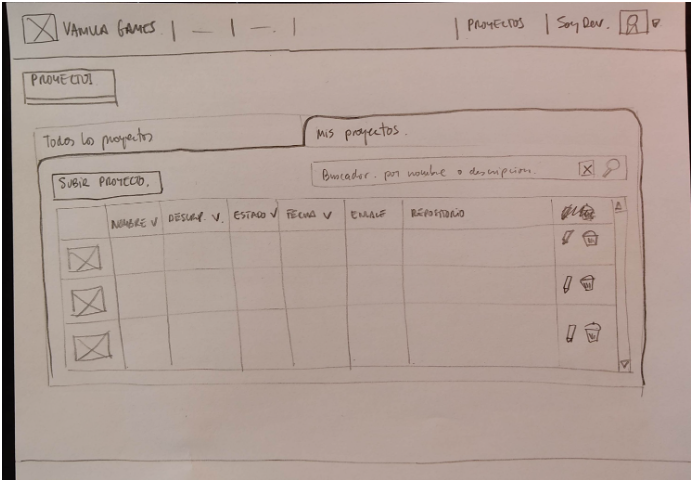 VANILLA GAMES
PROYECTOS
Soy Dev.
PROYECTOS
Todos los proyectos
Mis proyectos.
SUBIR PROYECTO.
Buscador. por nombre o descripcion.
NOMBRE
DESCRIP.
ESTADO
FECHA
ENLACE
REPOSITORIO